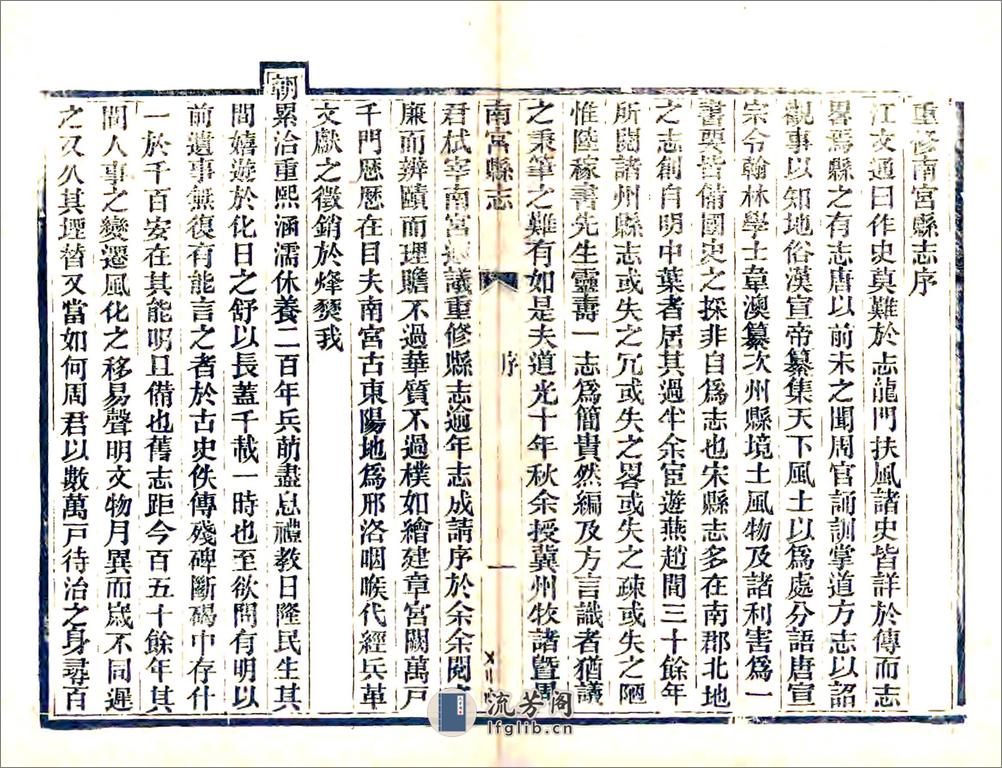 重修南宮縣志序
江文通曰作史莫難於志龍門扶風諸史皆詳於傳而志
畧焉縣之有志唐以前未之聞周官誦訓掌道方志以詔
觀事以知地俗漢宣帝纂集天下風土以爲處分語唐宣
宗令翰林學士韋澳纂次州縣境土風物及諸利害爲一
書要皆備國史之採非自爲志也宋縣志多在南郡北地
之志創自明中葉者居其過半余宦遊燕趙間三十餘年
所閱諸州縣志或失之冗或失之畧或失之疎或失之陋
惟陸稼書先生靈壽一志爲簡貴然編及方言識者猶議
之秉筆之難有如是夫道光十年秋余授冀州牧諸暨周
南宮縣志 序 一
君栻宰南宮議重修縣志逾年志成請序於余余閱
廉而辨賾而理贍不過華質不過樸如繪建章宮闕萬戸
千門歴歴在目夫南宮古東陽地爲邢洺咽喉代經兵革
文獻之徵銷於烽燹我
朝累洽重熙涵濡休養二百年兵萌盡息禮教日隆民生其
間嬉遊於化日之舒以長蓋千載一時也至欲問有明以
前遺事無復有能言之者於古史佚傳殘碑斷碣中存什
一於千百安在其能明且備也舊志距今百五十餘年其
間人事之變遷風化之移易聲明文物月異而歲不同遲
之又久其堙替又當如何周君以數萬戸待治之身尋百
流芳阁
lfglib.cn